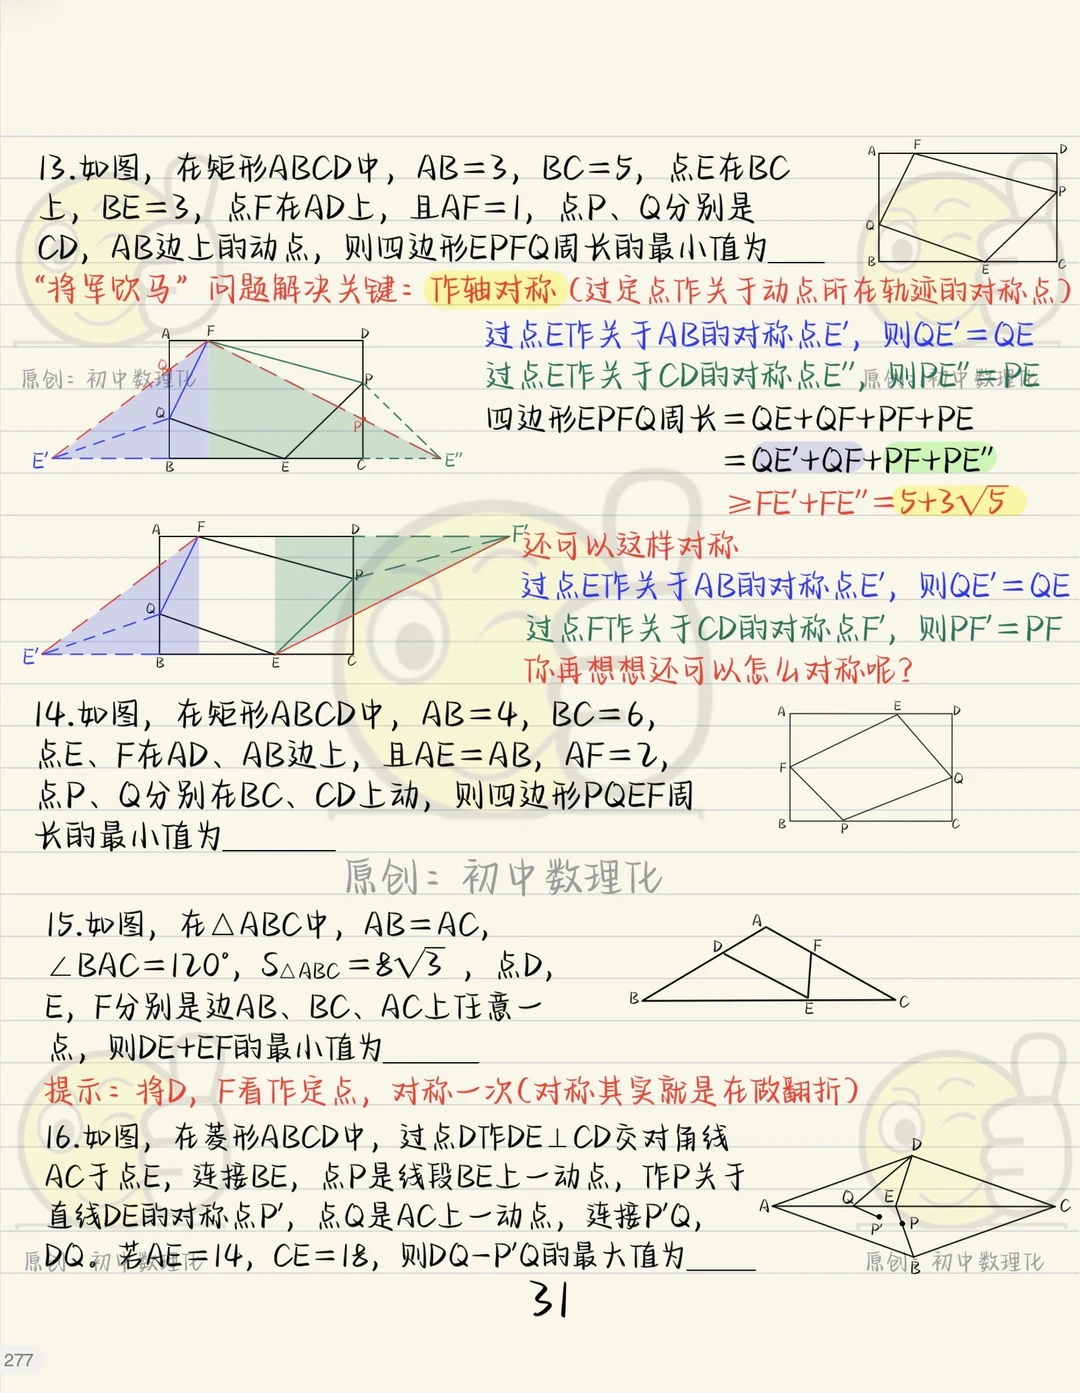 13.如图，在矩形ABCD中，AB=3，BC=5，点E在BC
上，BE=3，点F在AD上，且AF=1，点P、Q分别是
CD，AB边上的动点，则四边形EPFQ周长的最小值为____
A F D
P
Q
B E C
“将军饮马”问题解决关键：作轴对称（过定点作关于动点所在轨迹的对称点）
A F D
Q P
Q P
E′ B E C E″
过点E作关于AB的对称点E′，则QE′=QE
过点E作关于CD的对称点E″，则PE″=PE
四边形EPFQ周长=QE+QF+PF+PE
=QE′+QF+PF+PE″
≥FE′+FE″=5+3√5
原创：初中数理化
原创：初中数理化
A F D F′
Q P
E′ B E C
还可以这样对称
过点E作关于AB的对称点E′，则QE′=QE
过点F作关于CD的对称点F′，则PF′=PF
你再想想还可以怎么对称呢？
14.如图，在矩形ABCD中，AB=4，BC=6，
点E、F在AD、AB边上，且AE=AB，AF=2，
点P、Q分别在BC、CD上动，则四边形PQEF周
长的最小值为______
A E D
F Q
B P C
原创：初中数理化
15.如图，在△ABC中，AB=AC，
∠BAC=120°，S△ABC=8√3，点D，
E，F分别是边AB、BC、AC上任意一
点，则DE+EF的最小值为_____
A
D F
B E C
提示：将D，F看作定点，对称一次（对称其实就是在做翻折）
16.如图，在菱形ABCD中，过点D作DE⊥CD交对角线
AC于点E，连接BE，点P是线段BE上一动点，作P关于
直线DE的对称点P′，点Q是AC上一动点，连接P′Q，
DQ。若AE=14，CE=18，则DQ-P′Q的最大值为____
D
A Q E C
P′ P
B
原创：初中数理化
原创：初中数理化
31
277